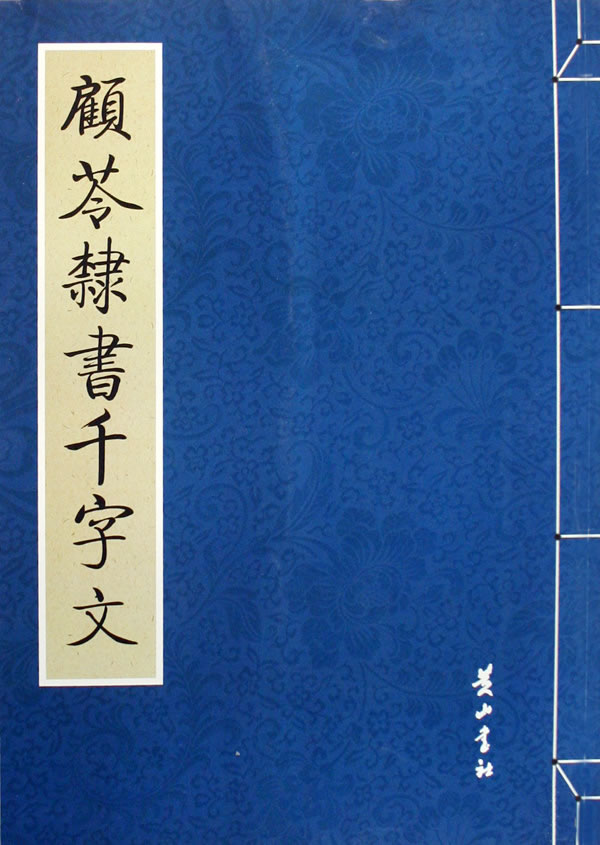 顧苓隸書千字文
黄山书社